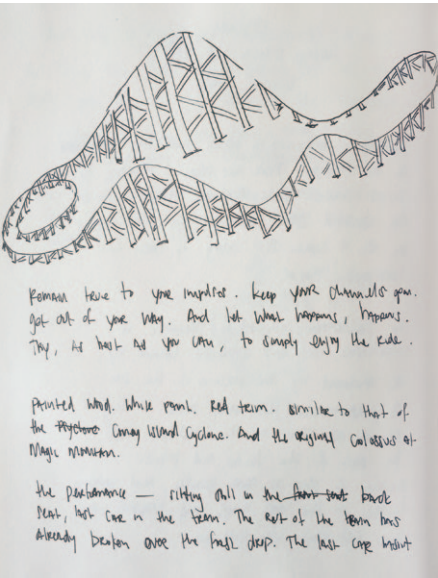 Remain true to your impulses. Keep YOUR channels open.
Get out of your way. And let what happens, happens.
Try, as best as you can, to simply enjoy the ride.
Painted wood. White paint. Red trim. Similar to that of
the Psyclone Coney Island Cyclone. And the original Colossus at
Magic Mountain.
the performance — sitting still in the front seat back
seat, last car in the train. The rest of the train has
already broken over the first drop. The last car hasn't